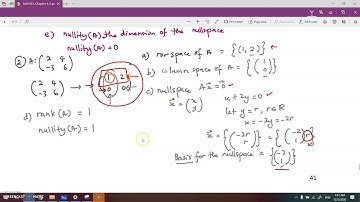 e) nullity(A), the dimension of the nullspace
nullity(A) = 0
② A = (2 4
-3 6)
(2 4
-3 6) → → → (1 2
0 0)
a) row space of A = {(1, 2)}
b) column space of A = {(1
0)}
c) nullspace Ax = 0
x = (x
y)
x + 2y = 0
let y = r, r ∈ R
x = -2y = -2r
x = {(-2r
r)} = {(-2
1) r}
Basis for the nullspace = {(-2
1)}
d) rank(A) = 1
nullity(A) = 1
41